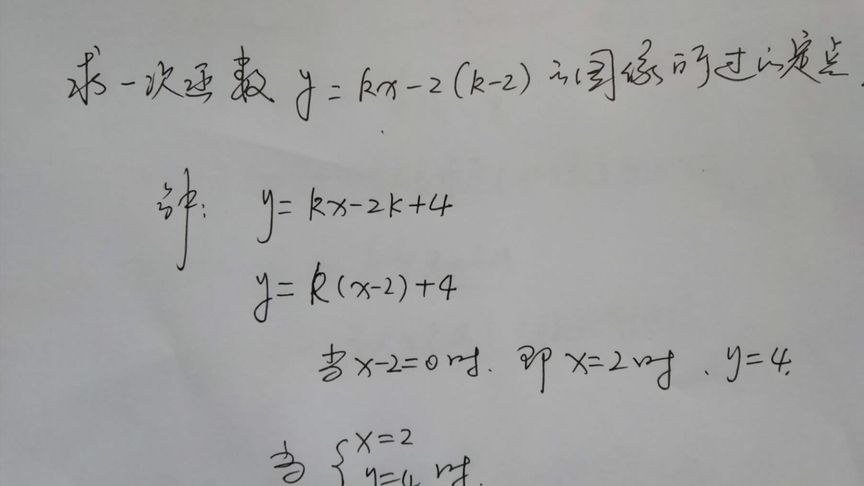 求一次函数 y=kx-2(k-2) 的图像所过的定点.
解: y=kx-2k+4
y=k(x-2)+4
当x-2=0时. 即x=2时、y=4.
当 { x=2
y=4 时.